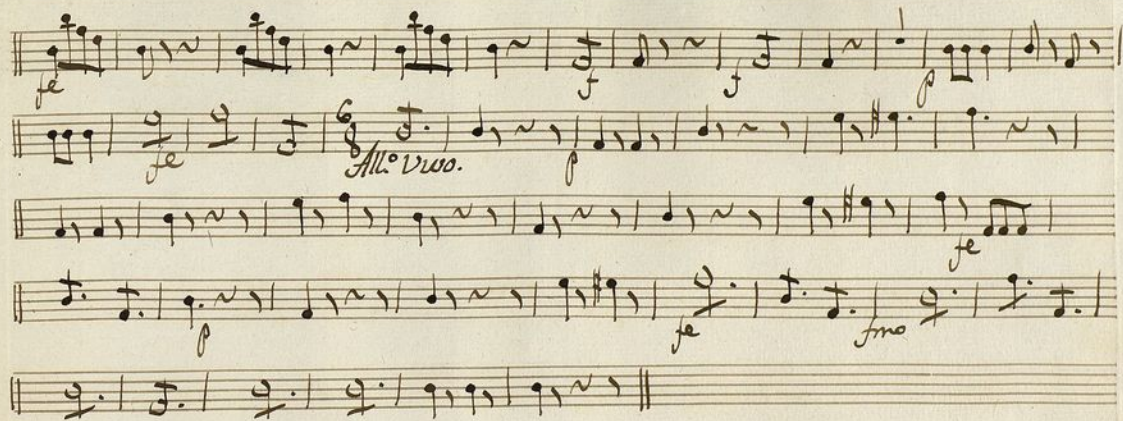 fe f f p
fe 6 8 All.º Vivo. p
fe
p fe fmo